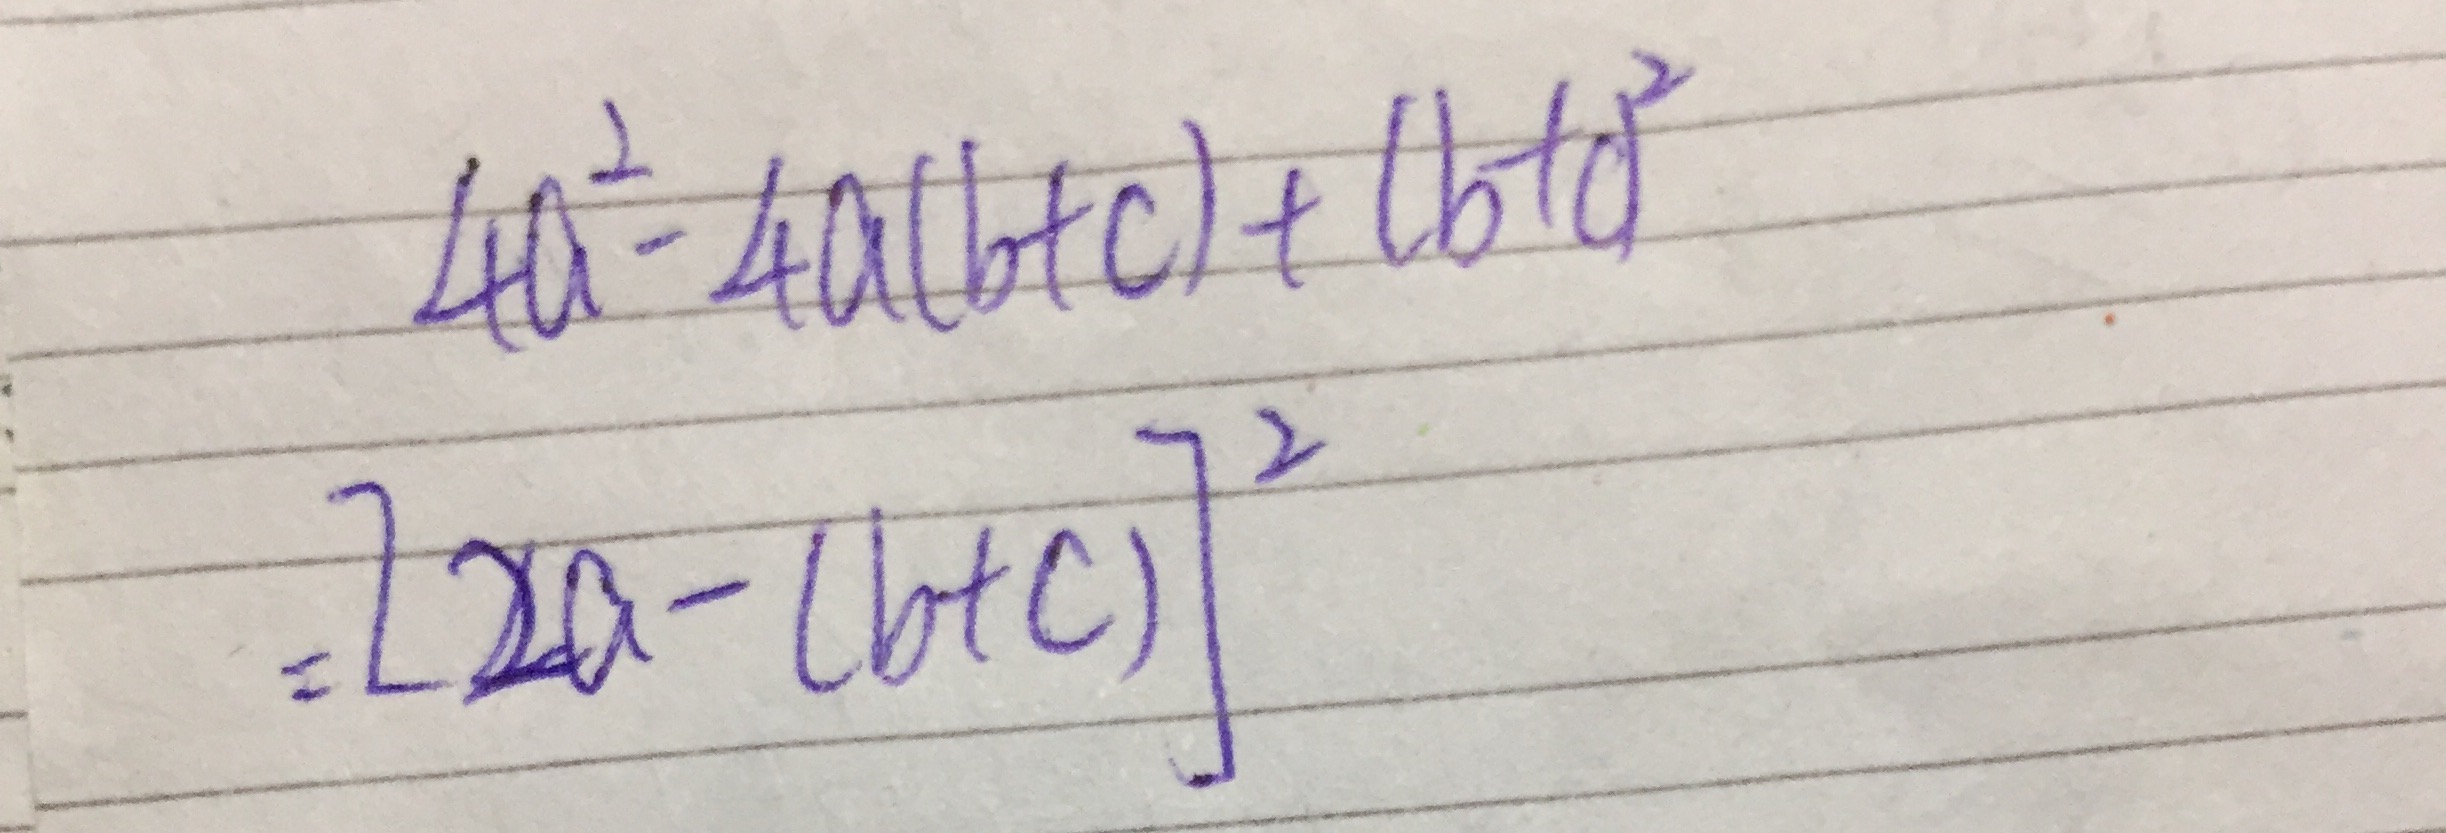 4a² - 4a(b+c) + (b+c)²
= [2a - (b+c)]²